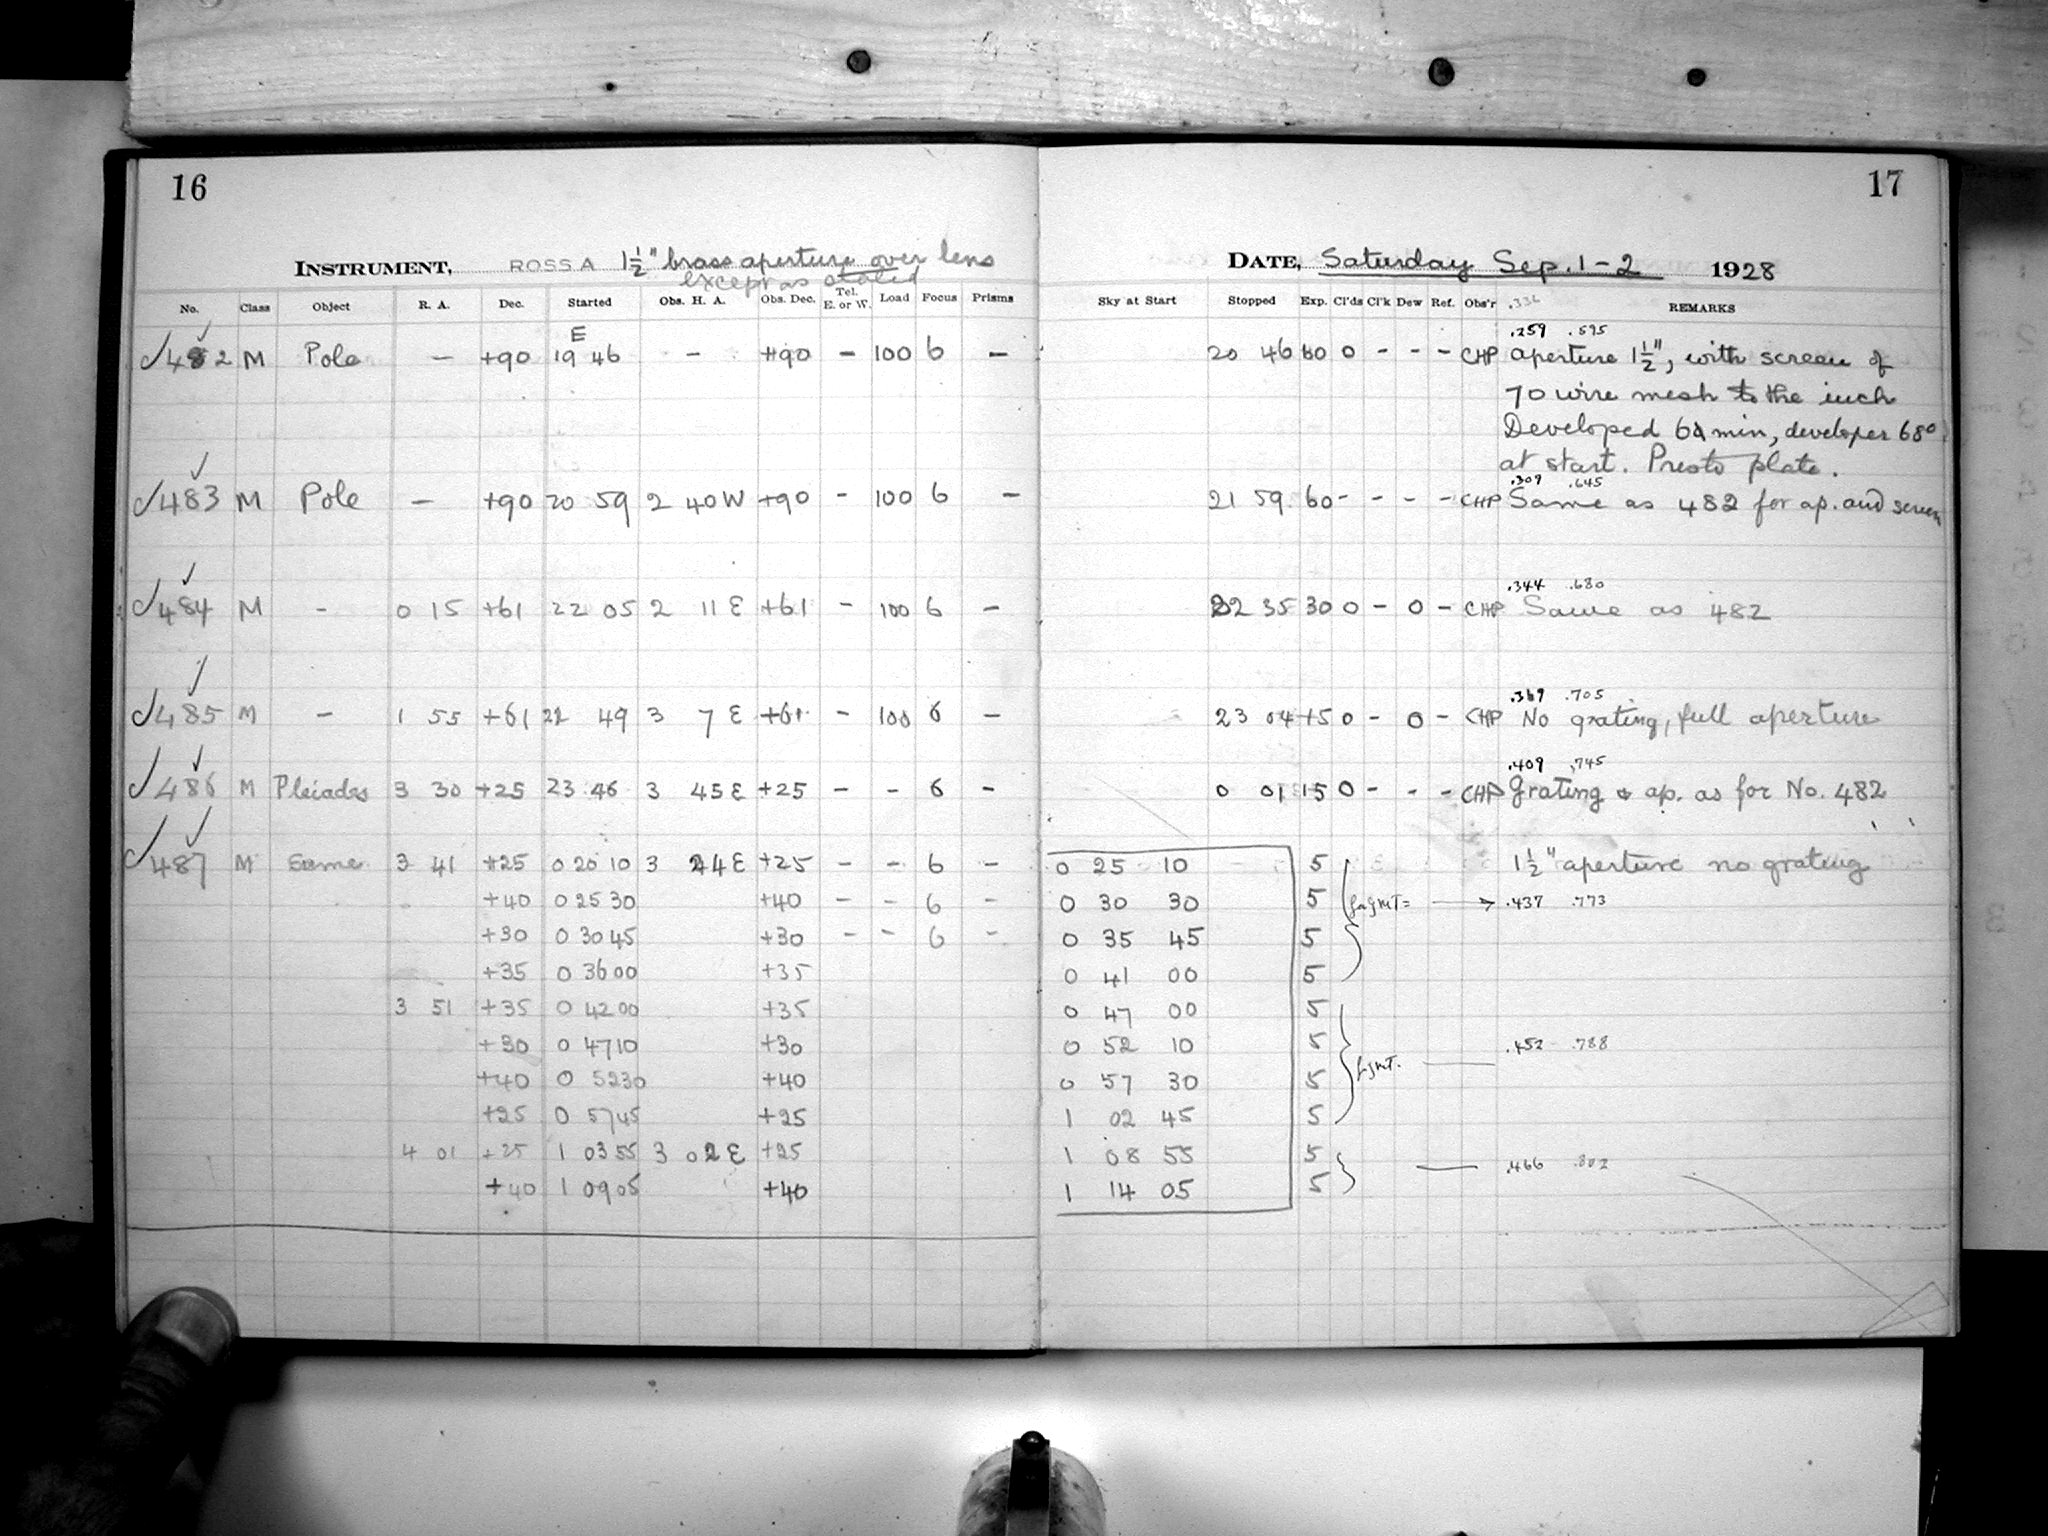 16
INSTRUMENT, ROSS A 1½" brass aperture over lens
except as stated
No. Class Object R. A. Dec. Started Obs. H. A. Obs. Dec. Tel. E. or W. Load Focus Prisms
E
482 M Pole — +90 19 46 — +90 — 100 6 —
483 M Pole — +90 20 59 2 40 W +90 - 100 6 —
484 M - 0 15 +61 22 05 2 11 E +61 - 100 6 —
485 M - 1 55 +61 22 49 3 7 E +61 - 100 6 —
486 M Pleiades 3 30 +25 23 46 3 45 E +25 - - 6 -
487 M Same 3 41 +25 0 20 10 3 24 E +25 - - 6 -
+40 0 25 30 +40 - - 6 -
+30 0 30 45 +30 - - 6 -
+35 0 36 00 +35
3 51 +35 0 42 00 +35
+30 0 47 10 +30
+40 0 52 30 +40
+25 0 57 45 +25
4 01 +25 1 03 55 3 02 E +25
+40 1 09 05 +40
17
DATE, Saturday Sep. 1-2 1928
Sky at Start Stopped Exp. Cl'ds Cl'k Dew Ref. Obs'r .336 REMARKS
.259 .595
20 46 60 0 - - - CHP aperture 1½", with screen of
70 wire mesh to the inch
Developed min, developer 68°
at start. Presto plate.
.309 .645
21 59 60 - - - - CHP Same as 482 for ap. and screen
.344 .680
22 35 30 0 - 0 - CHP Same as 482
.369 .705
23 04 15 0 - 0 - CHP No grating, full aperture
.409 .745
0 01 15 0 - - - CHP Grating & ap. as for No. 482
0 25 10 5 1½" aperture no grating
0 30 30 5 GMT= → .437 .773
0 35 45 5
0 41 00 5
0 47 00 5
0 52 10 5 .452 .788
0 57 30 5 GMT.
1 02 45 5
1 08 55 5 .466 .802
1 14 05 5